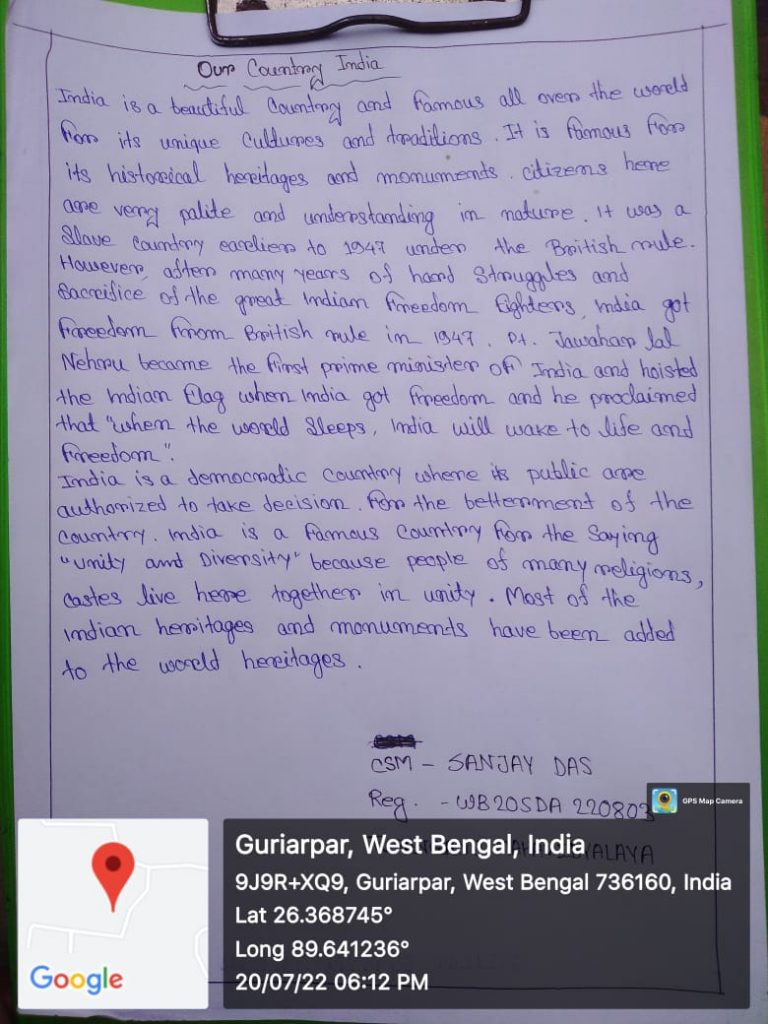 Our Country India
India is a beautiful Country and famous all over the world
for its unique Cultures and traditions. It is famous for
its historical hereitages and monuments. citizens here
are very palite and understanding in nature. It was a
Slave Country earelier to 1947 under the British rule.
However, after many years of hard Struggles and
Sacrifice of the great Indian Freedom Fighters, India got
Freedom From British rule in 1947. Pt. Jawahar lal
Nehru became the first prime minister of India and hoisted
the Indian Flag when India got freedom and he proclaimed
that "when the world Sleeps, India will wake to life and
freedom".
India is a democratic country where its public are
authorized to take decision. For the betterment of the
Country. India is a famous Country for the Saying
"Unity and Diversity" because people of many religions,
castes live here together in unity. Most of the
Indian herritages and monuments have been added
to the world hereitages.
CSM - SANJAY DAS
Reg. - WB20SDA 220803
GPS Map Camera
Guriarpar, West Bengal, India
9J9R+XQ9, Guriarpar, West Bengal 736160, India
Lat 26.368745°
Long 89.641236°
20/07/22 06:12 PM
Google